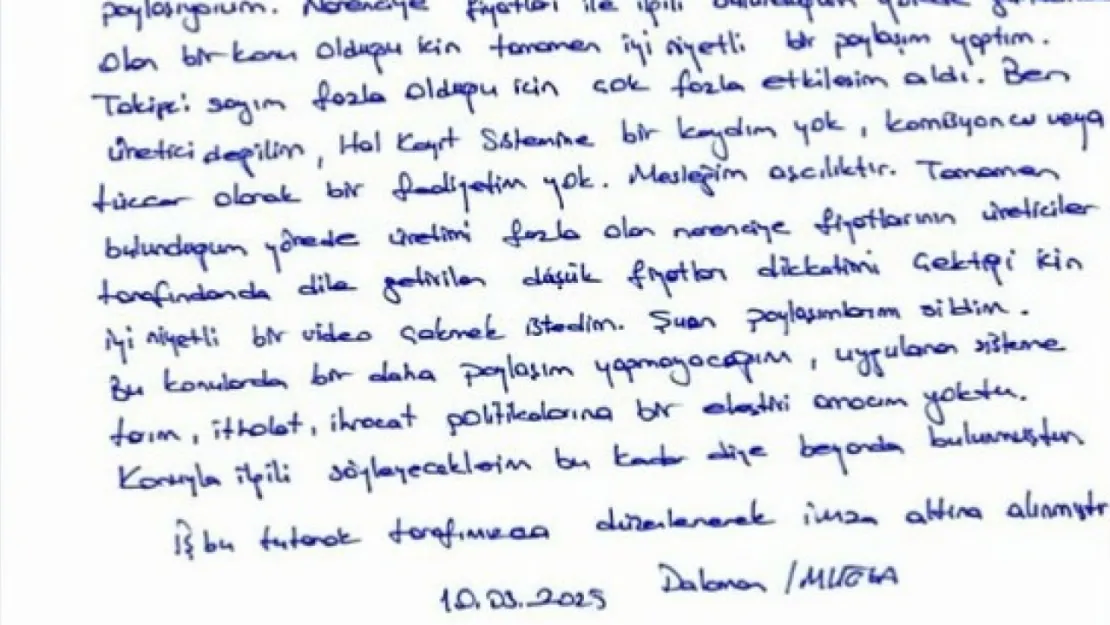 paylaşıyorum. Narenciye fiyatları ile ilgili bulunduğum yörede
olan bir konu olduğu için tamamen iyi niyetli bir paylaşım yaptım.
Takipçi sayım fazla olduğu için çok fazla etkileşim aldı. Ben
üretici değilim, Hal Kayıt Sistemine bir kaydım yok, komisyoncu veya
tüccar olarak bir faaliyetim yok. Mesleğim aşçılıktır. Tamamen
bulunduğum yörede üretimi fazla olan narenciye fiyatlarının üreticiler
tarafındanda dile getirilen düşük fiyatları dikkatimi çektiği için
iyi niyetli bir video çekmek istedim. Şuan paylaşımlarım sildim.
Bu konularda bir daha paylaşım yapmayacağım, uygulanan sisteme
tarım, ithalat, ihracat politikalarına bir eleştiri amacım yoktu.
Konuyla ilgili söyleyeceklerim bu kadar diye beyanda bulunmuştur.
İş bu tutanak tarafımızca düzenlenerek imza altına alınmıştır
10.03.2025 Dalaman / MUĞLA